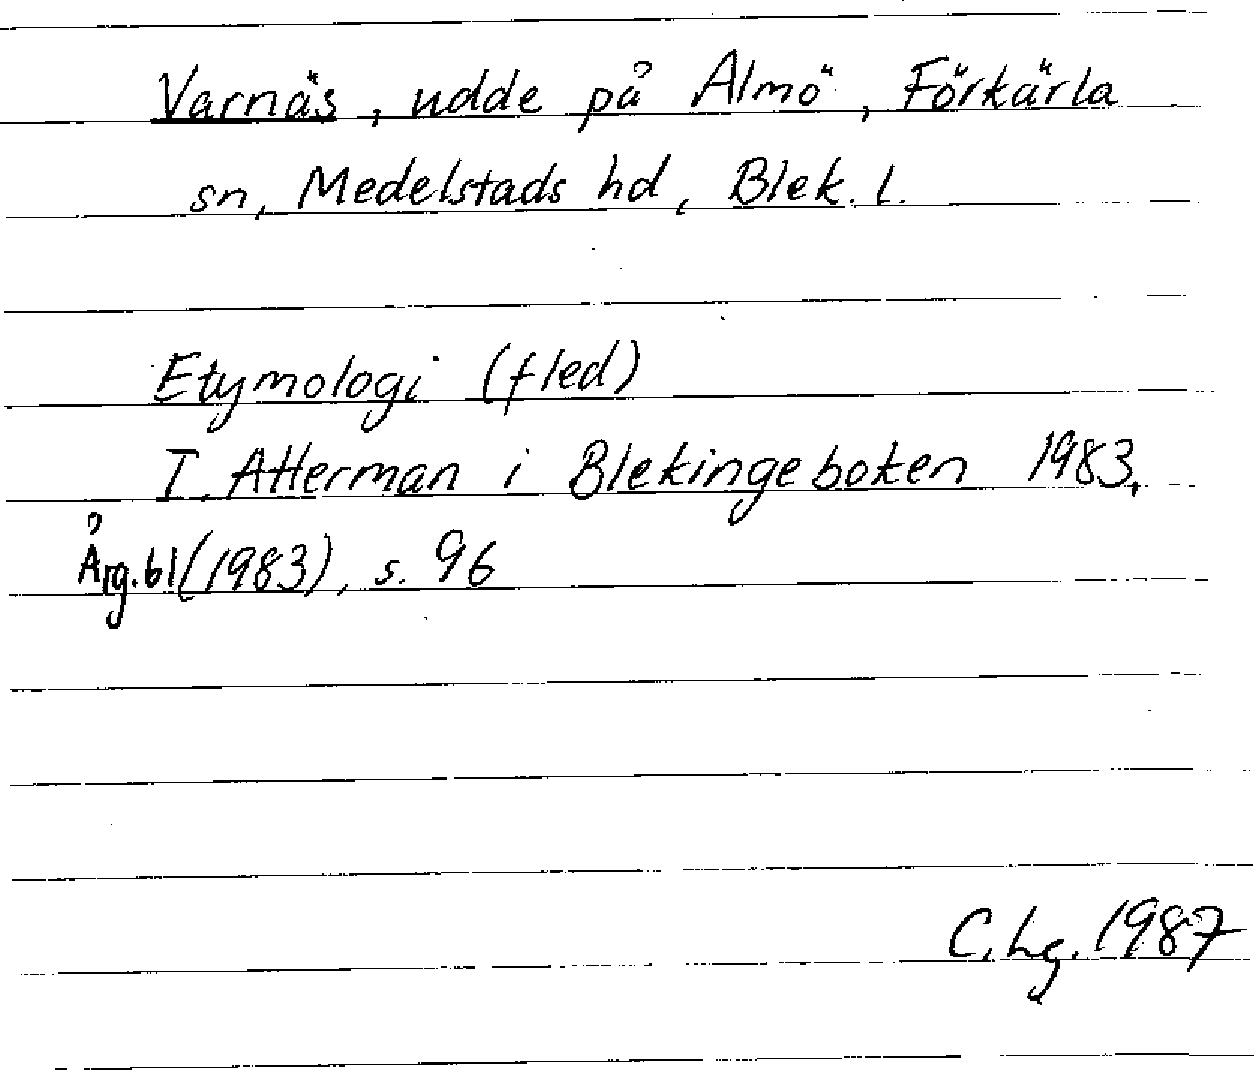 Varnäs, udde på Almö, Förkärla
sn, Medelstads hd, Blek. l.
Etymologi (fled)
I. Atterman i Blekingeboken 1983,
Årg.61(1983), s. 96
C. Lg. 1987